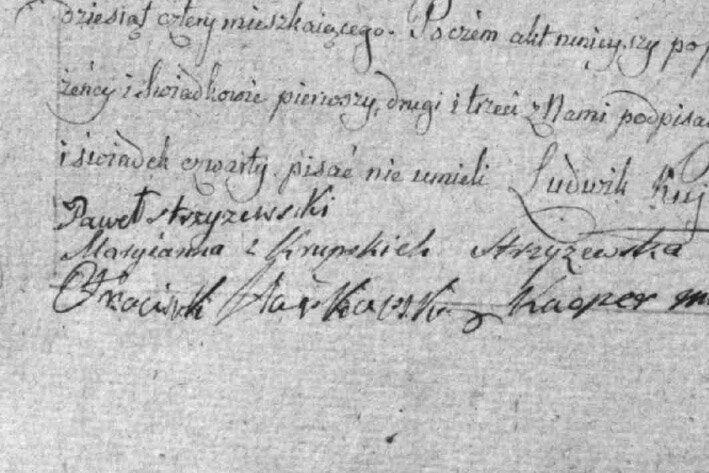 dziesiąt cztery mieszkaiącego. Poczém akt ninieyszy
żeńcy i Swiadkowie pierwszy, drugi i trzeci z Nami podpisa
i świadek czwarty pisać nie umieli Ludwik
Paweł strzyzewski
Maryianna z Krupskich Strzyzewska
Kacper